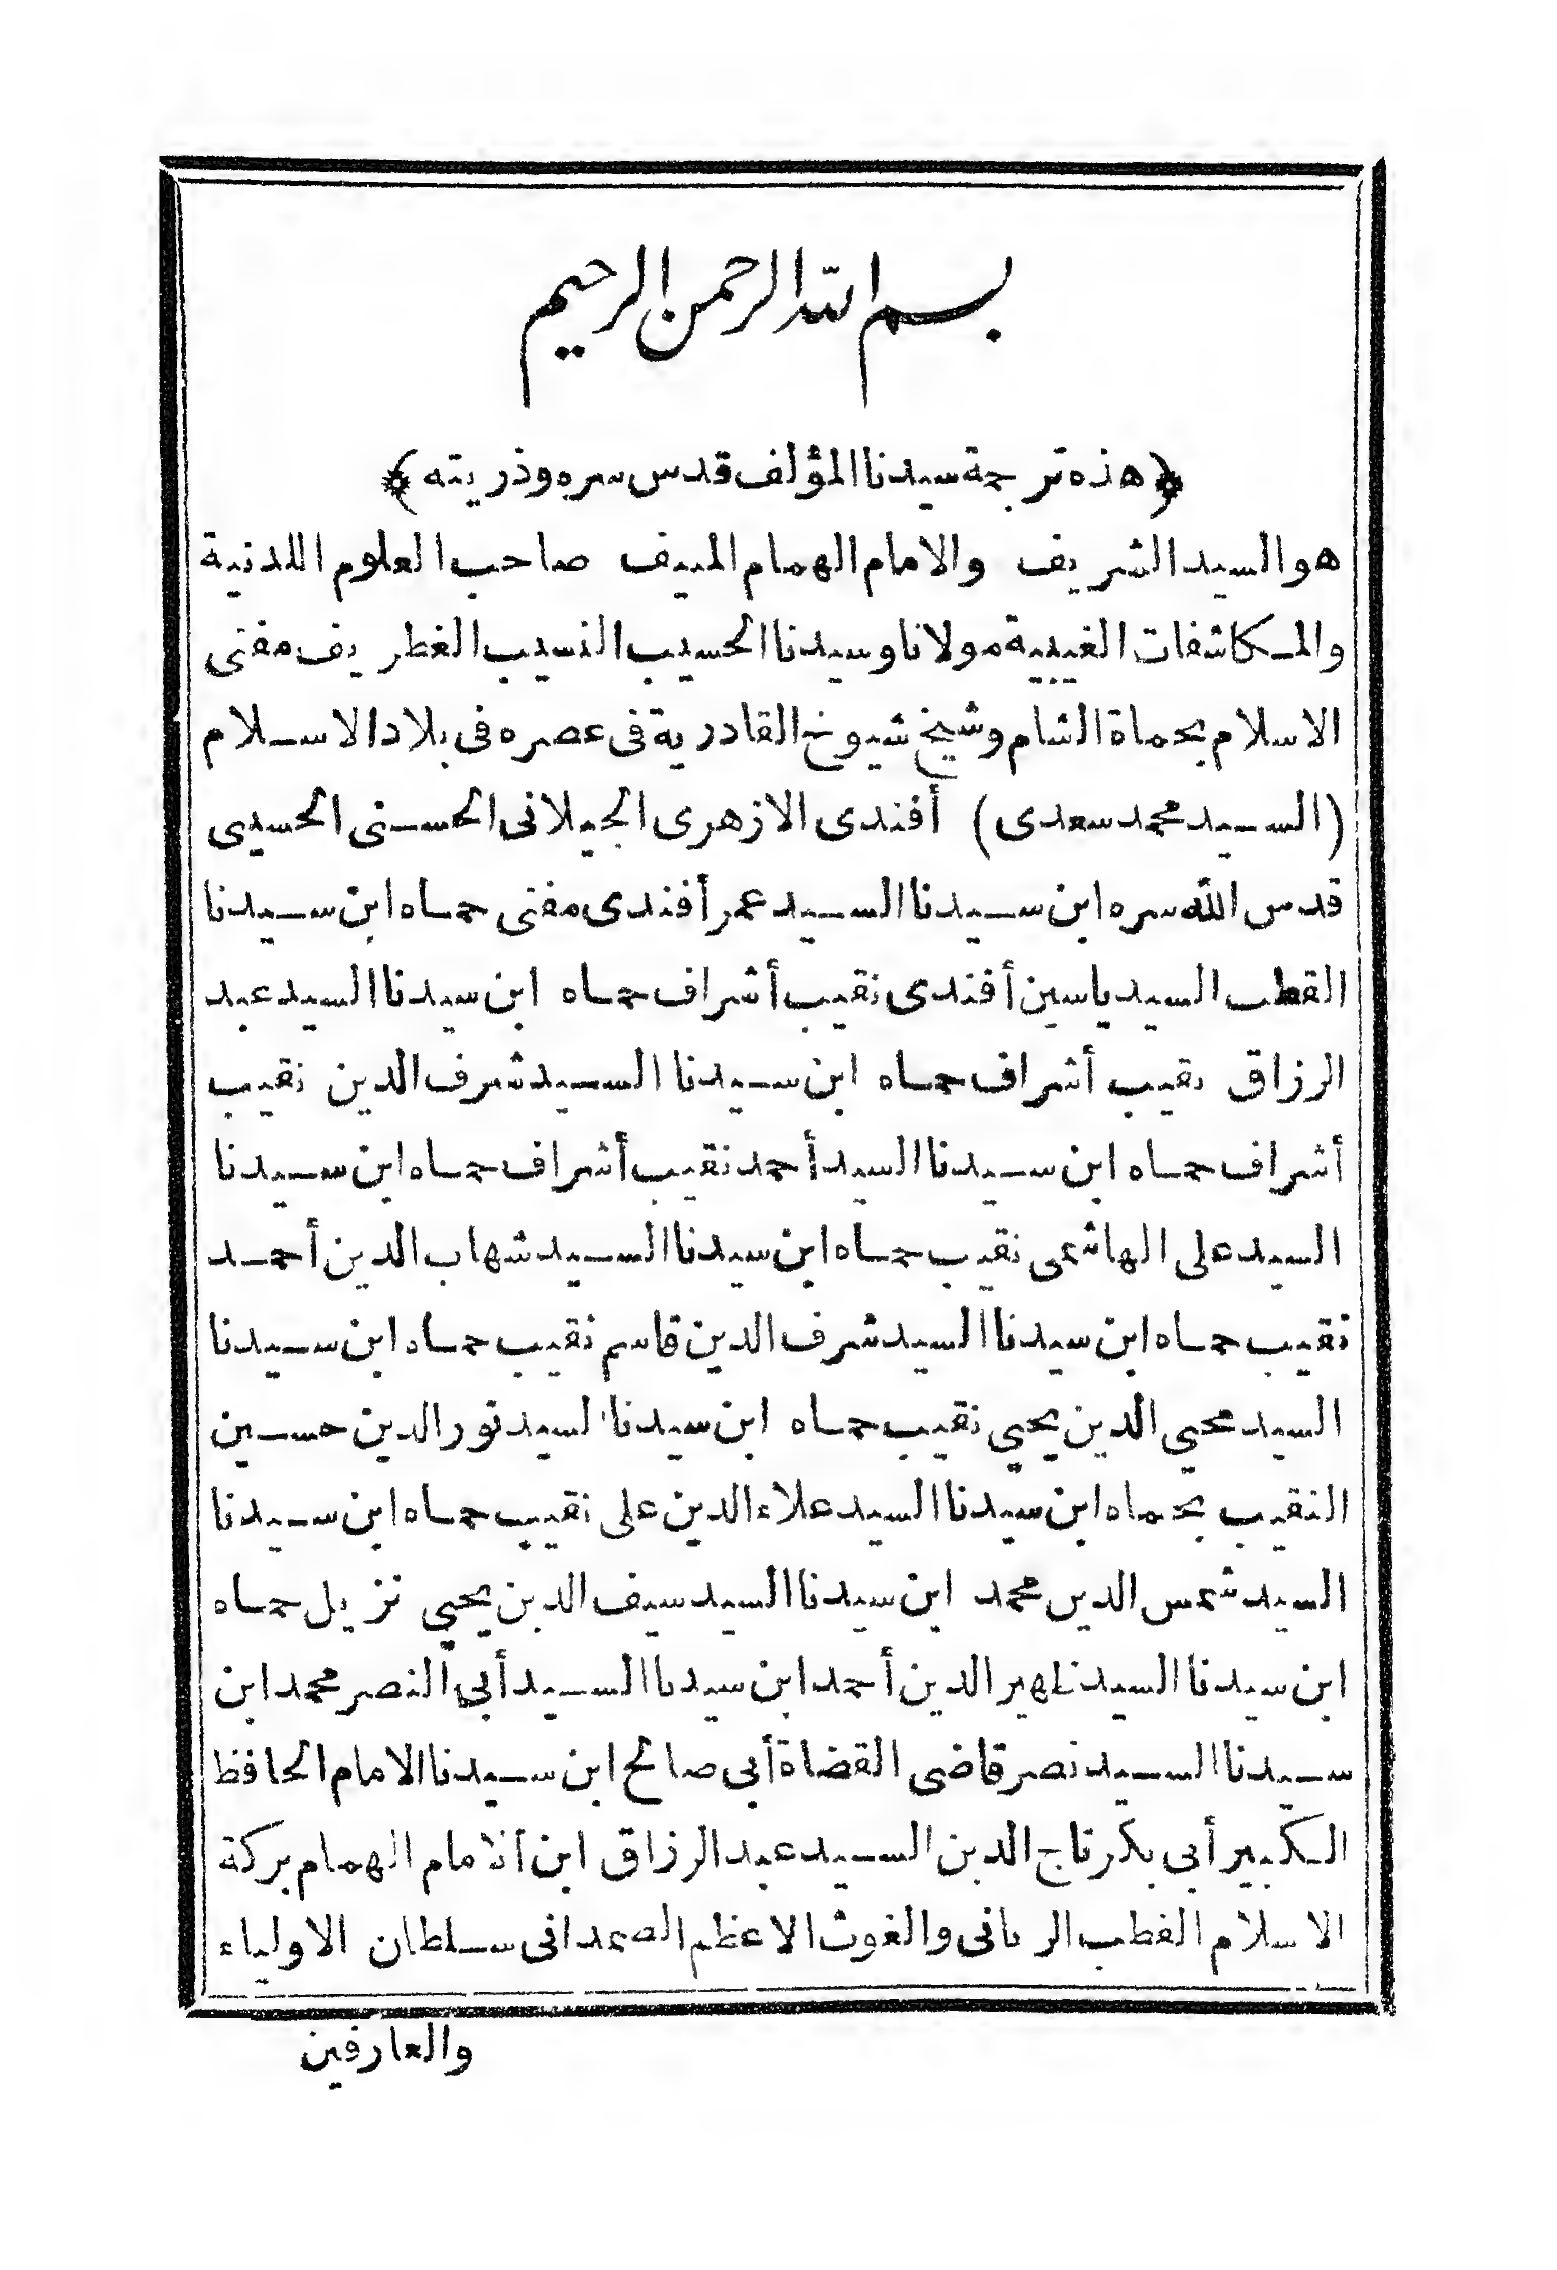 بسم الله الرحمن الرحيم
﴿هذه ترجمة سيدنا المؤلف قدس سره وذريته﴾
هو السيد الشريف والامام الهمام المنيف صاحب العلوم اللدنية
والمكاشفات الغيبية مولانا وسيدنا الحسيب النسيب الغطريف مفتى
الاسلام بحماة الشام وشيخ شيوخ القادرية فى عصره فى بلاد الاسلام
(السيد محمد سعدى) أفندى الازهرى الجيلانى الحسنى الحسينى
قدس الله سره ابن سيدنا السيد عمر أفندى مفتى حماه ابن سيدنا
القطب السيد ياسين أفندى نقيب أشراف حماه ابن سيدنا السيد عبد
الرزاق نقيب أشراف حماه ابن سيدنا السيد شرف الدين نقيب
أشراف حماه ابن سيدنا السيد أحمد نقيب أشراف حماه ابن سيدنا
السيد على الهاشمى نقيب حماه ابن سيدنا السيد شهاب الدين أحمد
نقيب حماه ابن سيدنا السيد شرف الدين قاسم نقيب حماه ابن سيدنا
السيد محيي الدين يحيي نقيب حماه ابن سيدنا السيد نور الدين حسين
النقيب بحماه ابن سيدنا السيد علاء الدين على نقيب حماه ابن سيدنا
السيد شمس الدين محمد ابن سيدنا السيد سيف الدين يحيي نزيل حماه
ابن سيدنا السيد ظهير الدين أحمد ابن سيدنا السيد أبي النصر محمد ابن
سيدنا السيد نصر قاضى القضاة أبى صالح ابن سيدنا الامام الحافظ
الكبير أبى بكر تاج الدين السيد عبد الرزاق ابن الامام الهمام بركة
الاسلام القطب الربانى والغوث الاعظم الصمدانى سلطان الاولياء
والعارفين